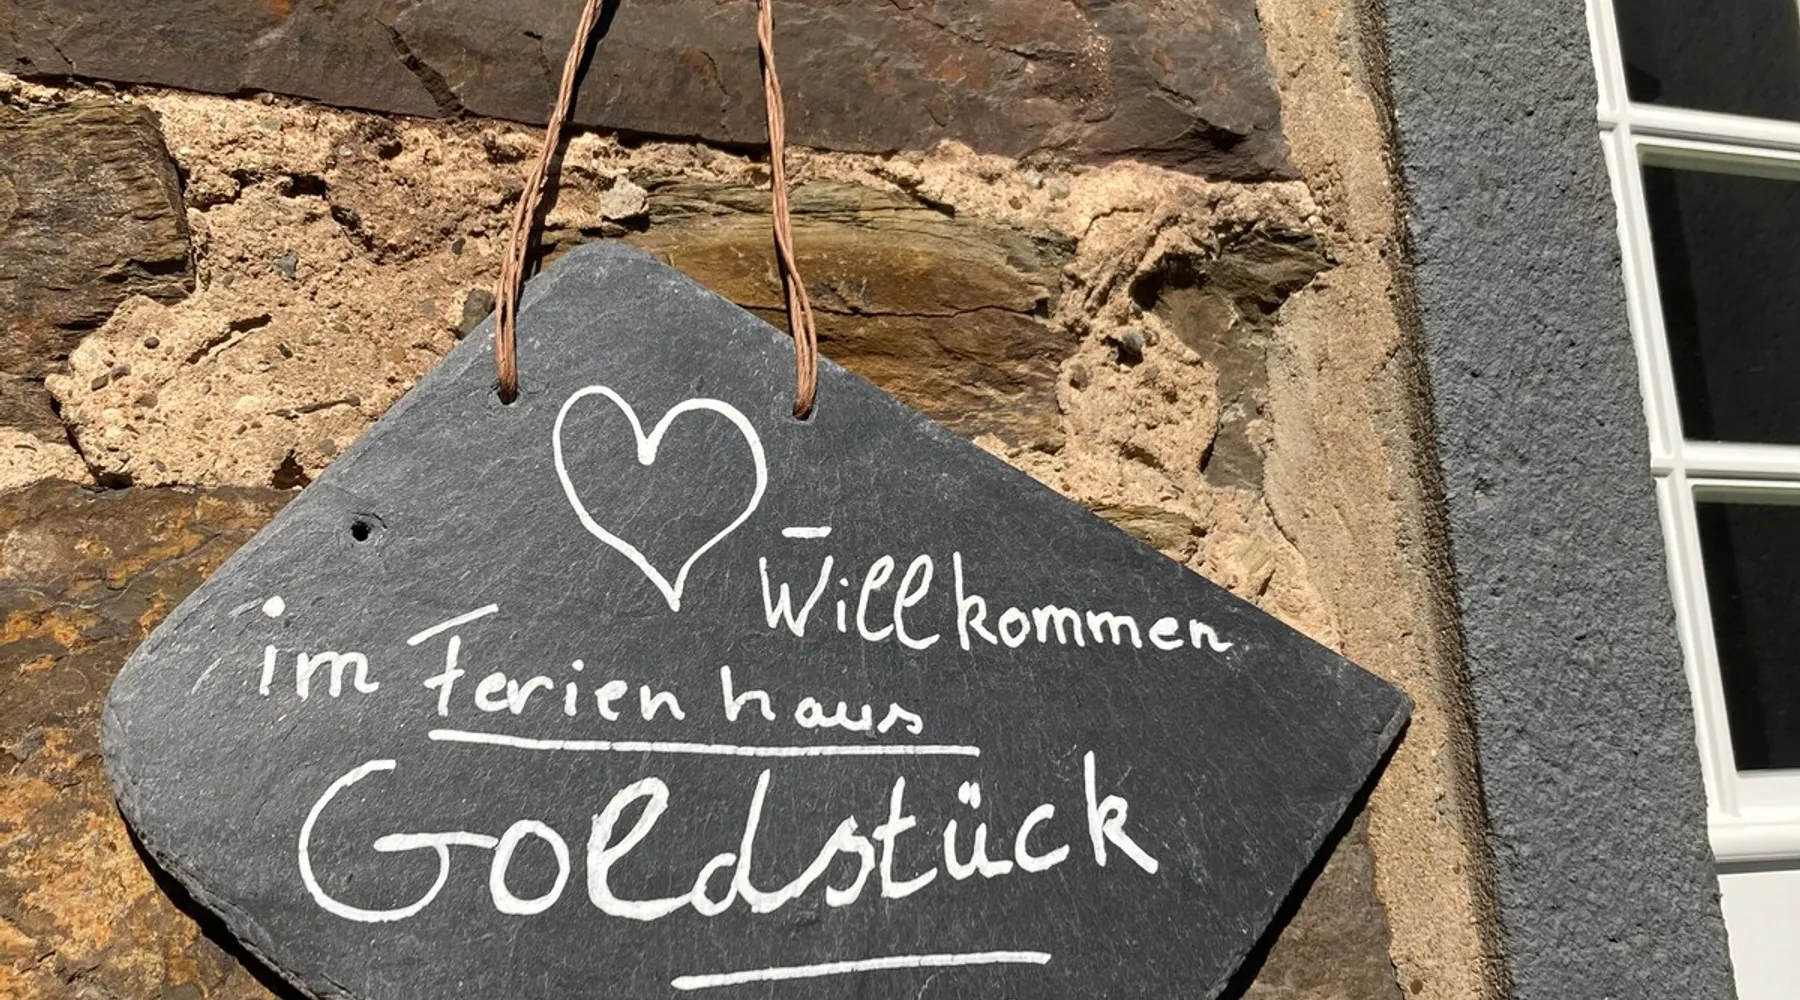 Willkommen
im Ferienhaus
Goldstück